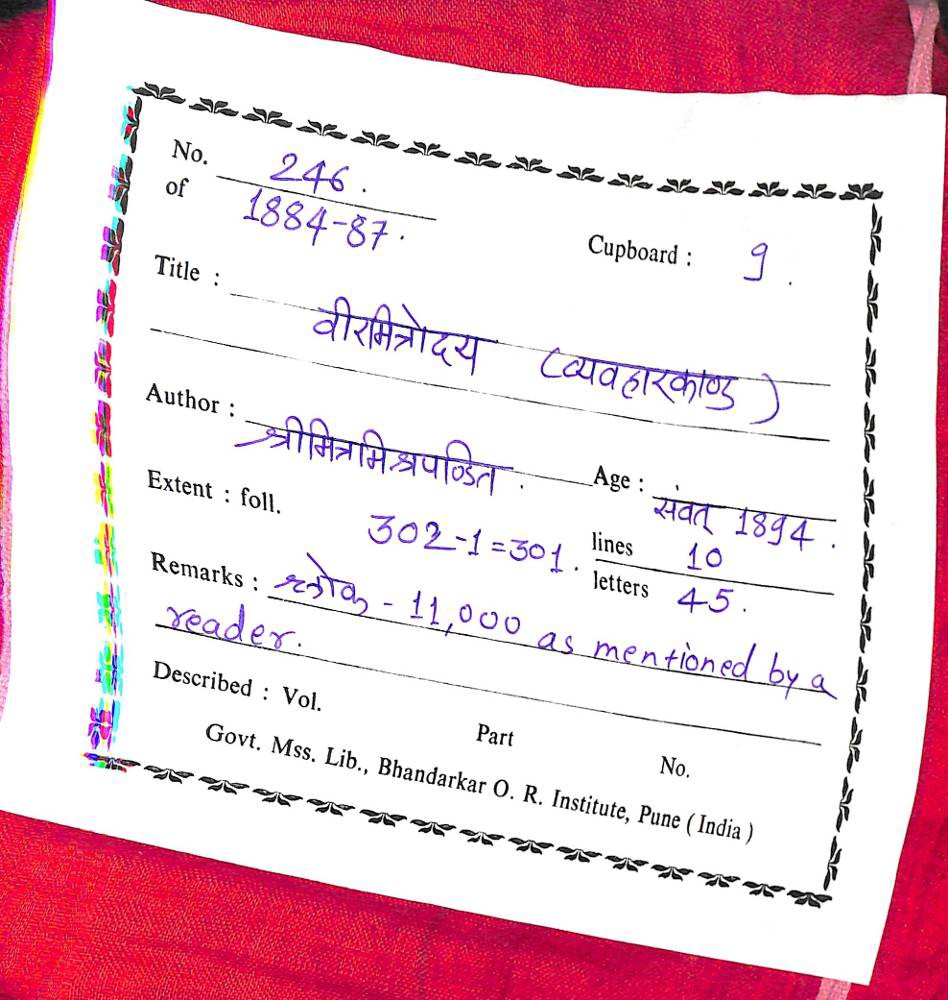 No. 246.
of 1884-87.
Cupboard : 9.
Title :
वीरमित्रोदय (व्यवहारकाण्ड)
Author :
श्रीमित्रमिश्रपण्डित.
Age : संवत् 1894.
Extent : foll. 302-1=301.
lines 10
letters 45.
Remarks : श्लोक - 11,000 as mentioned by a
reader.
Described : Vol. Part No.
Govt. Mss. Lib., Bhandarkar O. R. Institute, Pune (India)